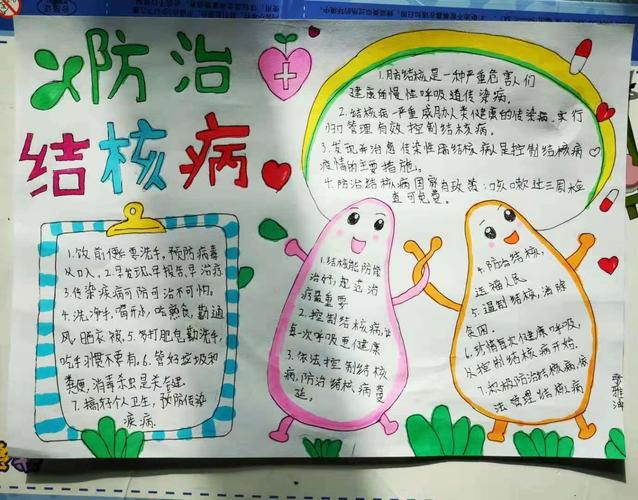 防治
结核病
1.肺结核是一种严重危害人们
健康的慢性呼吸道传染病。
2.结核病严重威胁人类健康的传染病,实行
归口管理有效控制结核病。
3.发现并治愈传染性肺结核病人是控制结核病
疫情的主要措施。
4.防治结核病国家有政策:咳嗽过三周检
查可免费。
1.饮前便后要洗手,预防病毒
从口入。2.早发现早报告,早治疗
3.传染疾病可防可治不可怕。
4.洗净手,喝开水,吃熟食,勤通
风,晒衣被。5.打肥皂勤洗手,
吃手习惯不要有。6.管好垃圾和
粪便,消毒杀虫是关键
7.搞好个人卫生,预防传染
疾病。
1.结核能防能
治好,规范治
疗最重要
2.控制结核病,让
每一次呼吸更健康
3.依法控制结核
病,防治结核病蔓
延。
4.防治结核,
造福人民
5.遏制结核,消除
贫困。
6.珍惜每次健康呼吸,
从控制结核病开始
7.积极防治结核病,依
法管理结核病